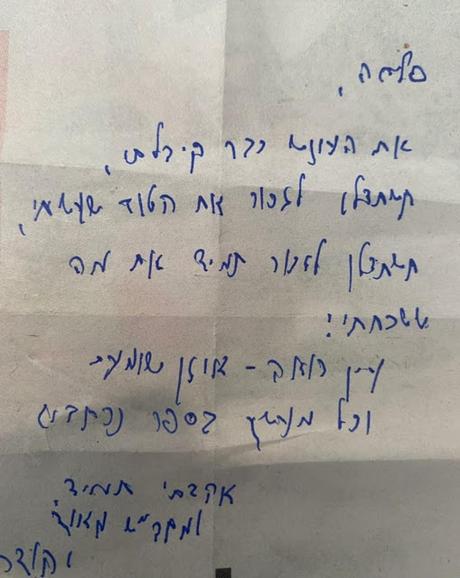 סליחה,
את העונש כבר קיבלתי,
תשתדלו לזכור את הטוב שעשיתי,
תשתדלו לזכור תמיד את מה
ששכחתי!
עין רואה - אוזן שומעת
וכל מעשיך בספר נכתבים
אהבתי תמיד,
מאוד